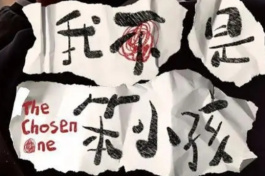 我不是
The
Chosen
One
笨小孩